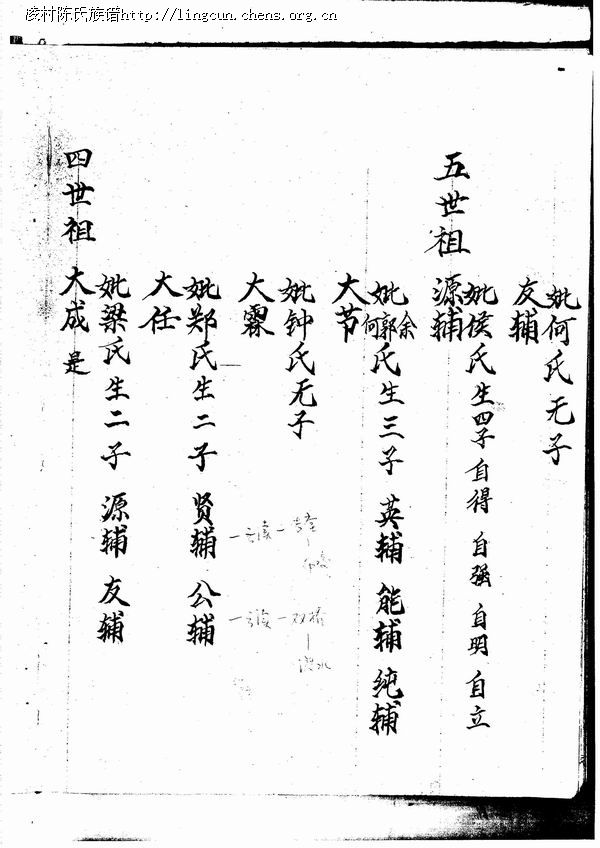 凌村陈氏族谱http://lingcun.chens.org.cn
四世祖 大成 是
妣梁氏生二子 源辅 友辅
大任
妣郑氏生二子 贤辅 公辅
大霖
妣钟氏无子
大节
妣何郭余氏生三子 英辅 能辅 纯辅
五世祖 源辅
妣侯氏生四子 自得 自强 自明 自立
友辅
妣何氏无子